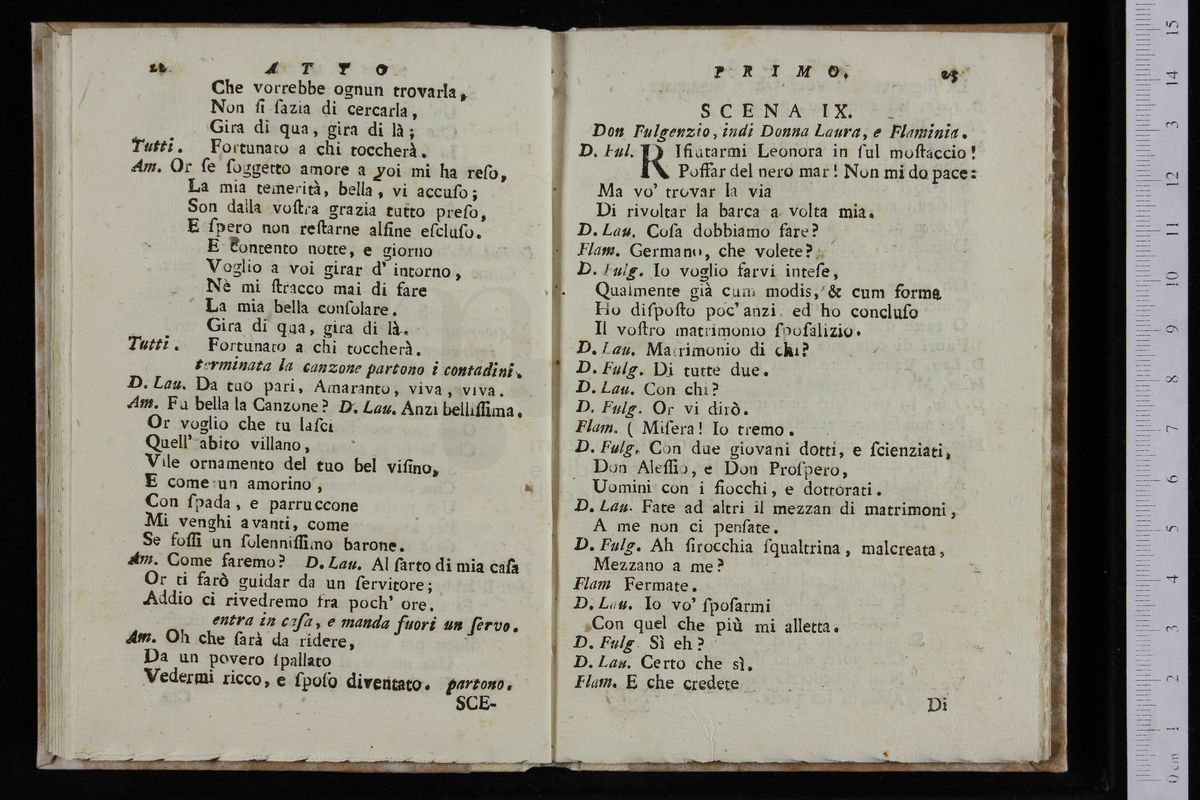 22 ATTO
Che vorrebbe ognun trovarla,
Non ſi ſazia di cercarla,
Gira di qua, gira di là;
Tutti. Fortunato a chi toccherà.
Am. Or ſe ſoggetto amore a voi mi ha reſo,
La mia temerità, bella, vi accuſo;
Son dalla voſtra grazia tutto preſo,
E ſpero non reſtarne alfine eſcluſo.
E contento notte, e giorno
Voglio a voi girar d' intorno,
Nè mi ſtracco mai di fare
La mia bella conſolare.
Gira di qua, gira di là.
Tutti. Fortunato a chi toccherà.
terminata la canzone partono i contadini.
D. Lau. Da tuo pari, Amaranto, viva, viva.
Am. Fu bella la Canzone? D. Lau. Anzi belliſſima.
Or voglio che tu laſci
Quell' abito villano,
Vile ornamento del tuo bel viſino,
E come un amorino,
Con ſpada, e parruccone
Mi venghi avanti, come
Se foſſi un ſolenniſſimo barone.
Am. Come faremo? D. Lau. Al ſarto di mia caſa
Or ti farò guidar da un ſervitore;
Addio ci rivedremo fra poch' ore.
entra in caſa, e manda fuori un ſervo.
Am. Oh che ſarà da ridere,
Da un povero ſpallato
Vedermi ricco, e ſpoſo diventato. partono.
SCE-
PRIMO. 23
SCENA IX.
Don Fulgenzio, indi Donna Laura, e Flaminia.
D. Ful. RIfiutarmi Leonora in ſul moſtaccio!
Poffar del nero mar! Non mi do pace:
Ma vo' trovar la via
Di rivoltar la barca a volta mia.
D. Lau. Coſa dobbiamo fare?
Flam. Germano, che volete?
D. Fulg. Io voglio farvi inteſe,
Qualmente già cum modis, & cum forma
Ho diſpoſto poc' anzi, ed ho concluſo
Il voſtro matrimonio ſpoſalizio.
D. Lau. Matrimonio di chi?
D. Fulg. Di tutte due.
D. Lau. Con chi?
D. Fulg. Or vi dirò.
Flam. ( Miſera! Io tremo.
D. Fulg. Con due giovani dotti, e ſcienziati,
Don Aleſſio, e Don Proſpero,
Uomini con i fiocchi, e dottorati.
D. Lau. Fate ad altri il mezzan di matrimoni,
A me non ci penſate.
D. Fulg. Ah ſirocchia ſqualtrina, malcreata,
Mezzano a me?
Flam Fermate.
D. Lau. Io vo' ſpoſarmi
Con quel che più mi alletta.
D. Fulg Sì eh?
D. Lau. Certo che sì.
Flam. E che credete
Di
0 cm 1 2 3 4 5 6 7 8 9 10 11 12 13 14 15